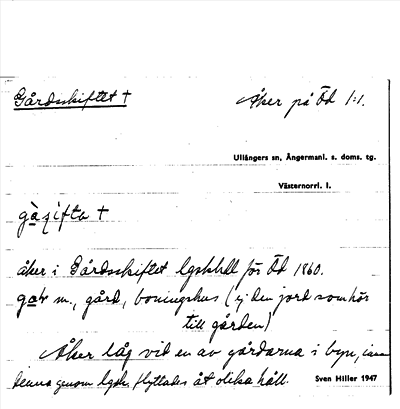 Gårdsskiftet †
Åker på Öd 1:1.
Ullångers sn, Ångermanl. s. doms. tg.
Västernorrl. l.
åker i Gårdsskiftet lgskhdl för Öd 1860.
m., gård, boningshus (ej den jord som hör
till gården)
Åker låg vid en av gårdarna i byn, innan
denna genom lgskr. flyttades åt olika håll.
Sven Hiller 1947